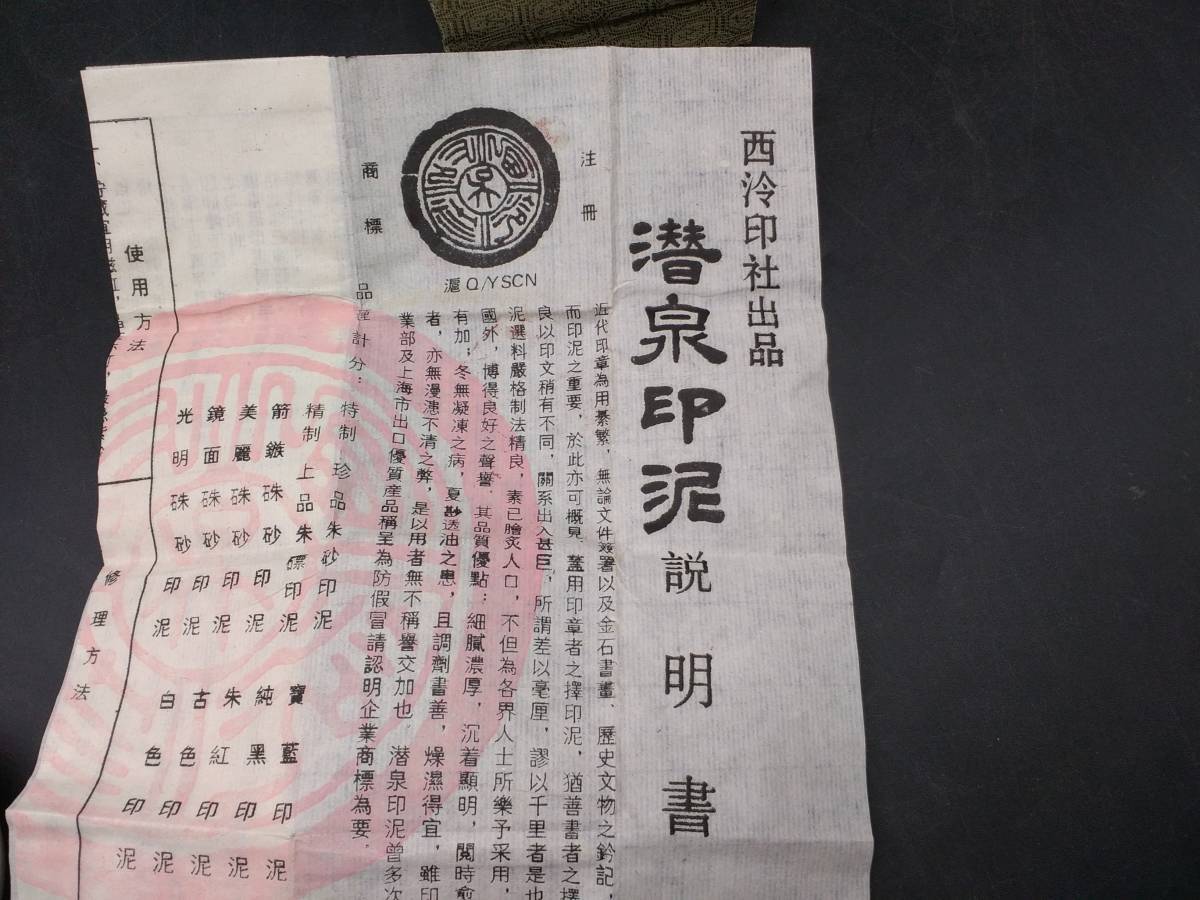 西泠印社出品
潜泉印泥説明書
注冊
商標
滬Q/YSCN
近代印章為用綦繁，無論文件簽署以及金石書畫、歷史文物之鈐記，
而印泥之重要，於此亦可概見。蓋用印章者之擇印泥，猶善書者之擇
良以印文稍有不同，關系出入甚巨，所謂差以毫厘，謬以千里者是也
泥選料嚴格制法精良，素已膾炙人口，不但為各界人士所樂予采用，
國外，博得良好之聲譽．其品質優點：細膩濃厚，沉着顯明，閱時愈
有加；冬無凝凍之病，夏尠透油之患，且調劑書善，燥濕得宜，雖印
者，亦無漫漶不清之弊，是以用者無不稱譽交加也。潜泉印泥曾多次
業部及上海市出口優質産品稱呈為防假冒請認明企業商標為要．
品種計分：
特制珍品朱砂印泥
精制上品朱磦印泥
箭鏃硃砂印泥
美麗硃砂印泥
鏡面硃砂印泥
光明硃砂印泥
寶藍印泥
純黑印泥
朱紅印泥
古色印泥
白色印泥
使用方法
修理方法